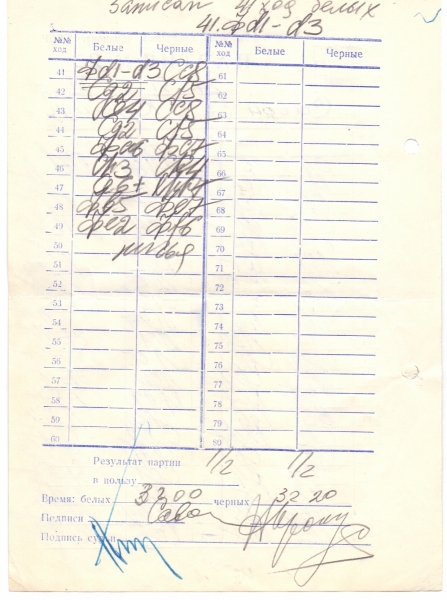 Записан 41 ход белых
41. Фd1-d3
№№ ход Белые Черные №№ ход Белые Черные
41 Фd1-d3 Сc8 61
42 Сd2 Сf5 62
43 Сc8 63
44 Сd2 Сf5 64
45 65
46 66
47 67
48 Фb5 Фe7 68
49 Фe2 Фf6 69
50 ничья 70
51 71
52 72
53 73
54 74
55 75
56 76
57 77
58 78
59 79
60 80
Результат партии 1/2 1/2
в пользу
Время: белых 3.2.00 черных 3.2.20
Подписи
Подпись судьи